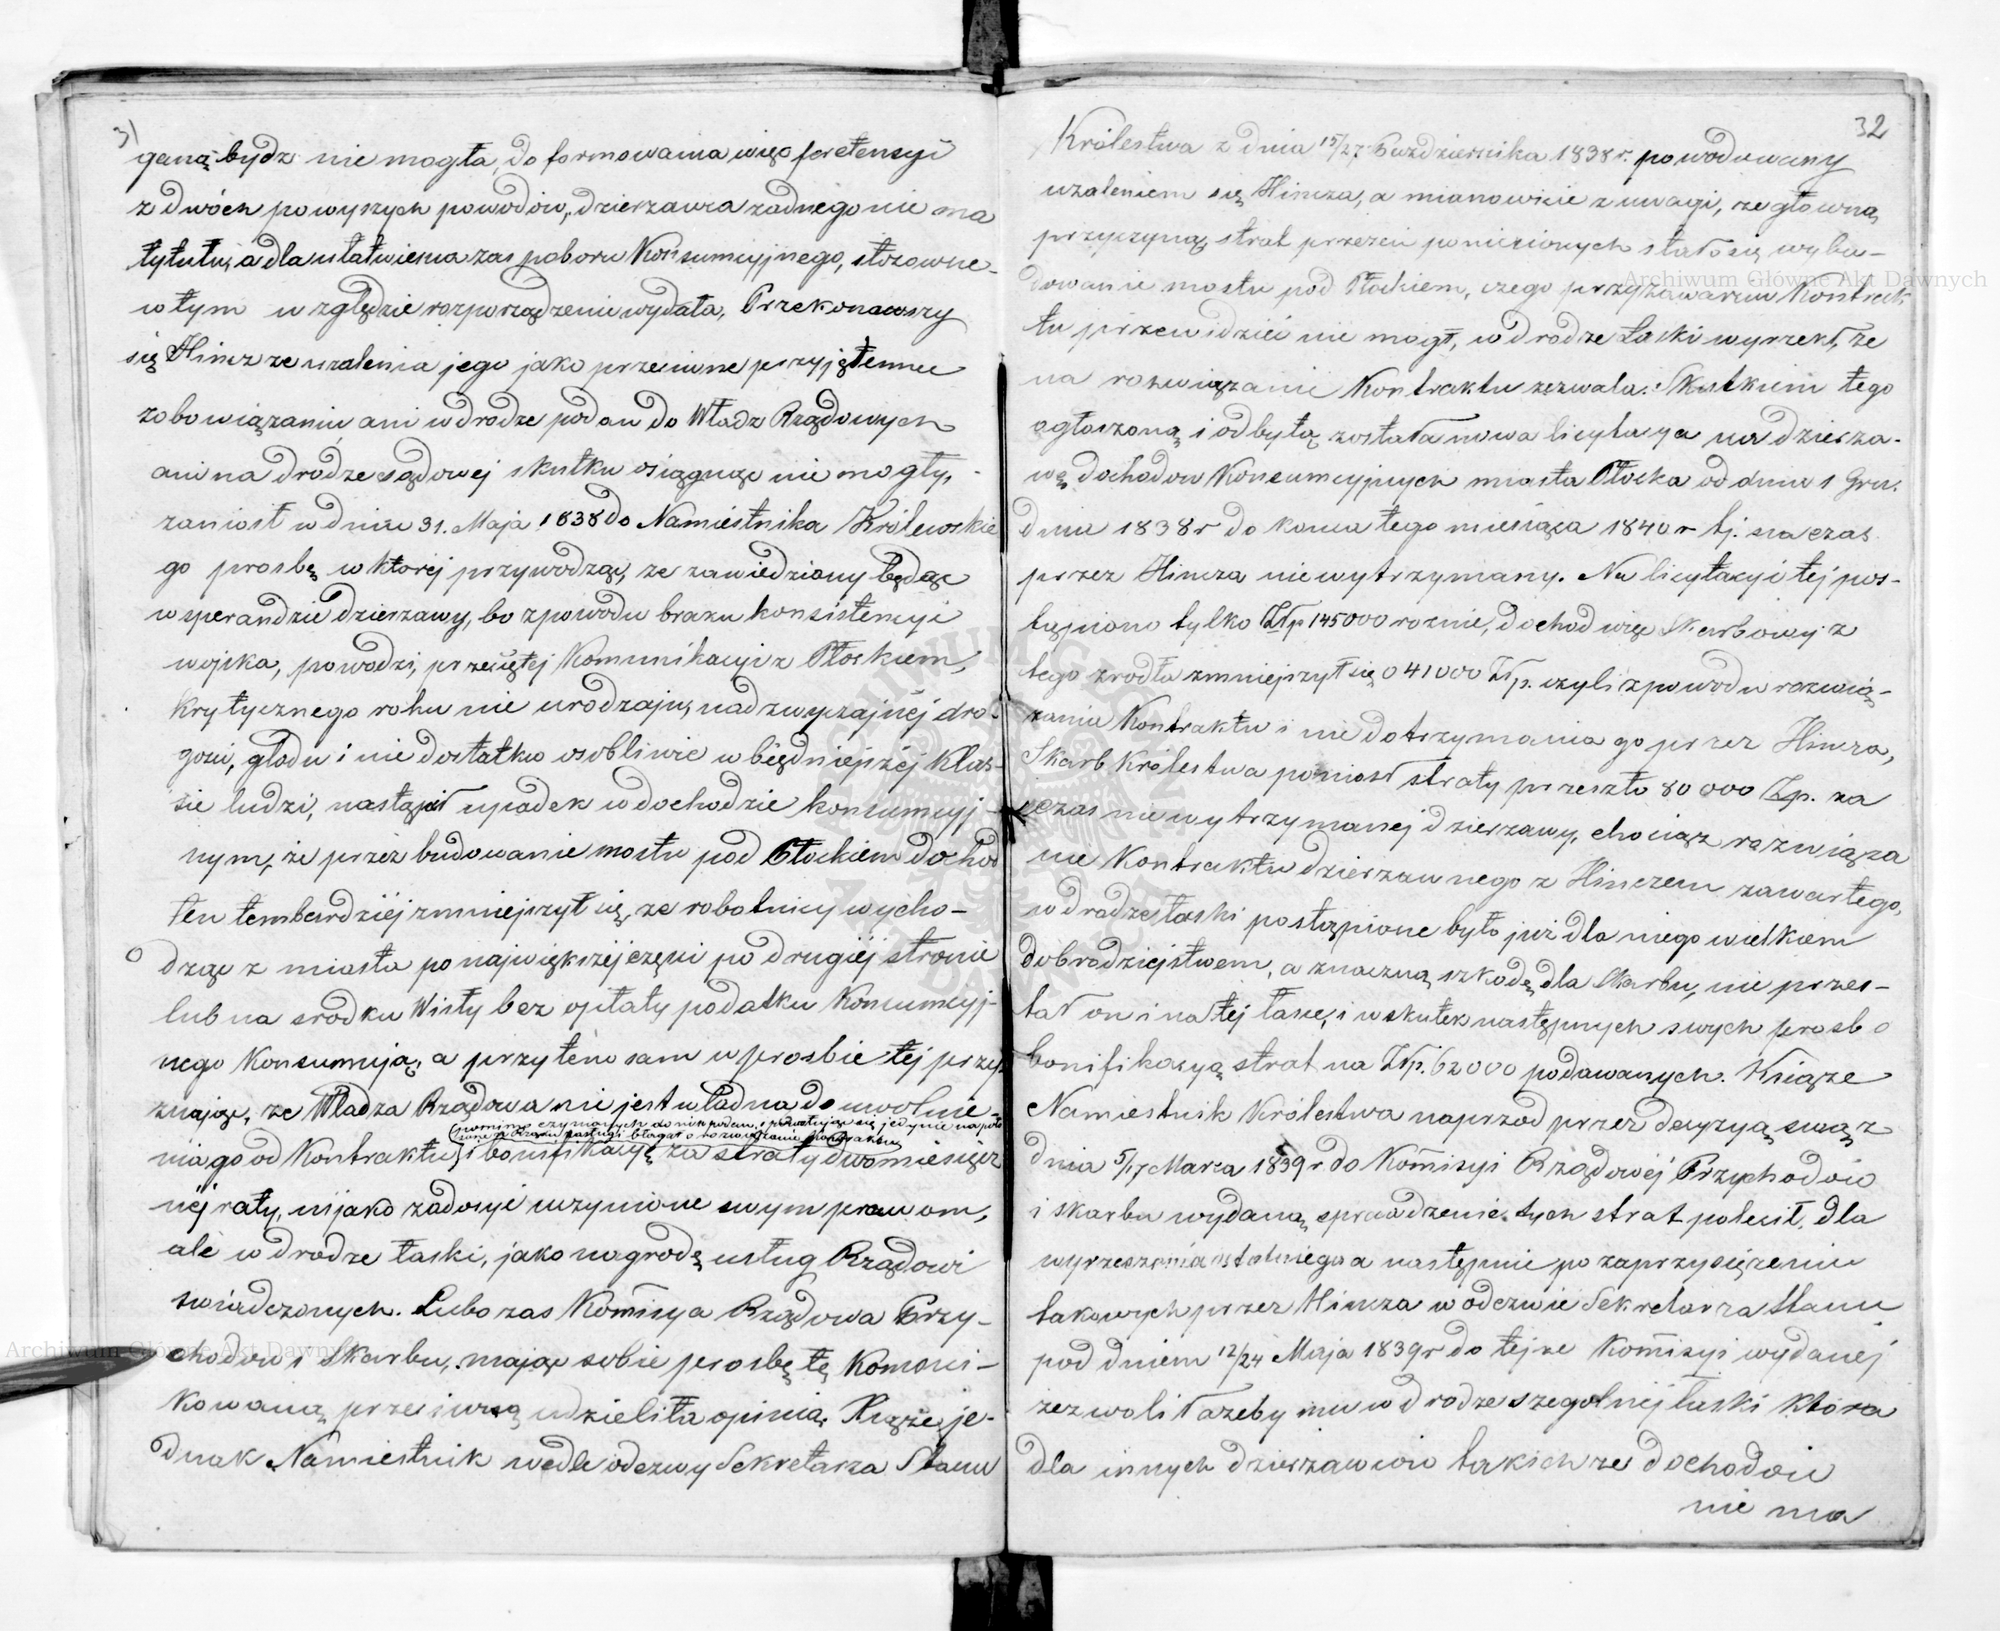 31
ganą bydz nie mogła, do formowania więc pretensyi
z dwóch powyższych powodów, dzierzawca zadnego nie ma
tytułu, a dla ułatwienia zas poboru Konsumcyjnego, stosowne
w tym względzie rozporządzenie wydała, Przekonawszy
się Hincz ze uzalenia jego jako przeciwne przyjętemu
zobowiązaniu ani w drodze podań do Władz Rządowych
ani na drodze sądowej skutku osiągnąć nie mogły,
zaniosł w dniu 31. Maja 1838 do Namiestnika Królewskie
go prosbę w ktorej przywodząc, ze zawiedziony będąc
w sperandzie dzierzawy, bo z powodu braku konsistencyi
wojska, powodzi, przeciętej Komunikacyi z Płockiem,
Krytycznego roku nie urodzaju, nadzwyczajnej dro-
gosci, głodu i nie dostatku osobliwie w biedniejszej Klas-
sie ludzi, nastąpił upadek w dochodzie konsumcyj-
nym, że przez budowanie mostu pod Płockiem dochod
ten tembardziej zmniejszył się, ze robotnicy wycho-
dząc z miasta po największej części po drugiej stronie
lub na srodku Wisły bez opłaty podatku Konsumcyj-
nego Konsumują, a przytem sam w prosbie tej przy-
znając, ze Władza Rządowa nie jest władna do uwolnie-
pomimo czynionych do nich podań, i powołując się jedynie na poło
zone w Kraju zasługi błagał o rozwiązanie Kontraktu
nia go od Kontraktu, i bonifikacyę za straty dwomiesięcz
nej raty, nijako zadosyć uczynione swym prawom,
ale w drodze łaski, jako nagrodę usług Rządowi
swiadczonych. Lubo zas Kommisya Rządowa Przy-
chodow i Skarbu, mając sobie prosbę tę Komuni-
kowaną przeciwną udzieliła opinią, Xiąże je-
dnak Namiestnik wedle odezwy Sekretarza Stanu
32
Królestwa z dnia 15/27 Pazdziernika 1838 r. powodowany
uzaleniem się Hincza, a mianowicie z uwagi, ze głowną
przyczyną strat przezeń poniesionych stało się wybu-
dowanie mostu pod Płockiem, czego przy zawarciu Kontrak-
tu przewidzieć nie mogł, w drodze Łaski wyrzekł, ze
na rozwiązanie Kontraktu zezwala. Skutkiem tego
ogłoszoną i odbytą została nowa licytacya na dzierza-
wę dochodow Konsumcyjnych miasta Płocka od dnia 1 Gru.
dnia 1838 r do konca tego miesiąca 1840 r tj. na czas
przez Hincza niewytrzymany. Na licytacyi tej pos-
tąpiono tylko Złp 145000 rocznie, dochod więc Skarbowy z
tego zrodła zmniejszył się o 41000 Złp. czyli z powodu rozwią-
zania Kontraktu i nie dotrzymania go przez Hincza,
Skarb Królestwa poniosł straty przeszło 80 000 Złp. za
czas niewytrzymanej dzierzawy, chociaż rozwiąza
nie Kontraktu dzierzawnego z Hinczem zawartego,
w drodze łaski postąpione było już dla niego wielkiem
dobrodziejstwem, a znaczną szkodę dla Skarbu, nie przes-
tał on i na tej łasce, i w skutek następnych swych prosb o
bonifikacyą strat na Złp. 62000 podawanych. Książe
Namiestnik Królestwa naprzod przez decyzyą swą z
dnia 5/17 Marca 1839 r. do Kommisyi Rządowej Przychodow
i skarbu wydaną sprawdzenie tych strat polecił, dla
wyrzeczenia ostatniego a następnie po zaprzysiężeniu
takowych przez Hincza w odezwie Sekretarza Stanu
pod dniem 12/24 Maja 1839 r do tejze Kommisyi wydanej
zezwolił azeby mu w drodze szczegolnej łaski która
dla innych dzierzawcow takichze dochodow
nie ma
Archiwum Główne Akt Dawnych
Archiwum Główne Akt Dawnych